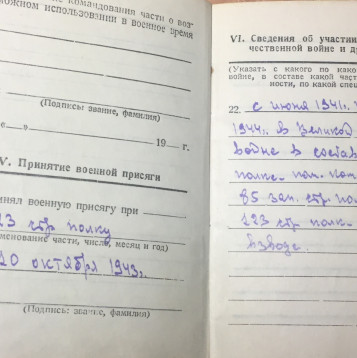 е командования части о воз-
ожном использовании в военное время
(Подпись: звание, фамилия)
«—» 19 г.
V. Принятие военной присяги
нял военную присягу при
23 стр. полку
менование части, число, месяц и год)
10 октября 1943 г.
(Подпись: звание, фамилия)
VI. Сведения об участии
чественной войне и д
(Указать с какого по како
войне, в составе какой част
ности, по какой спец
22. с июня 1941 г.
1944 г. в Великой
войне в состав
85 зап. стр. по
123 стр. полк.
взвода.